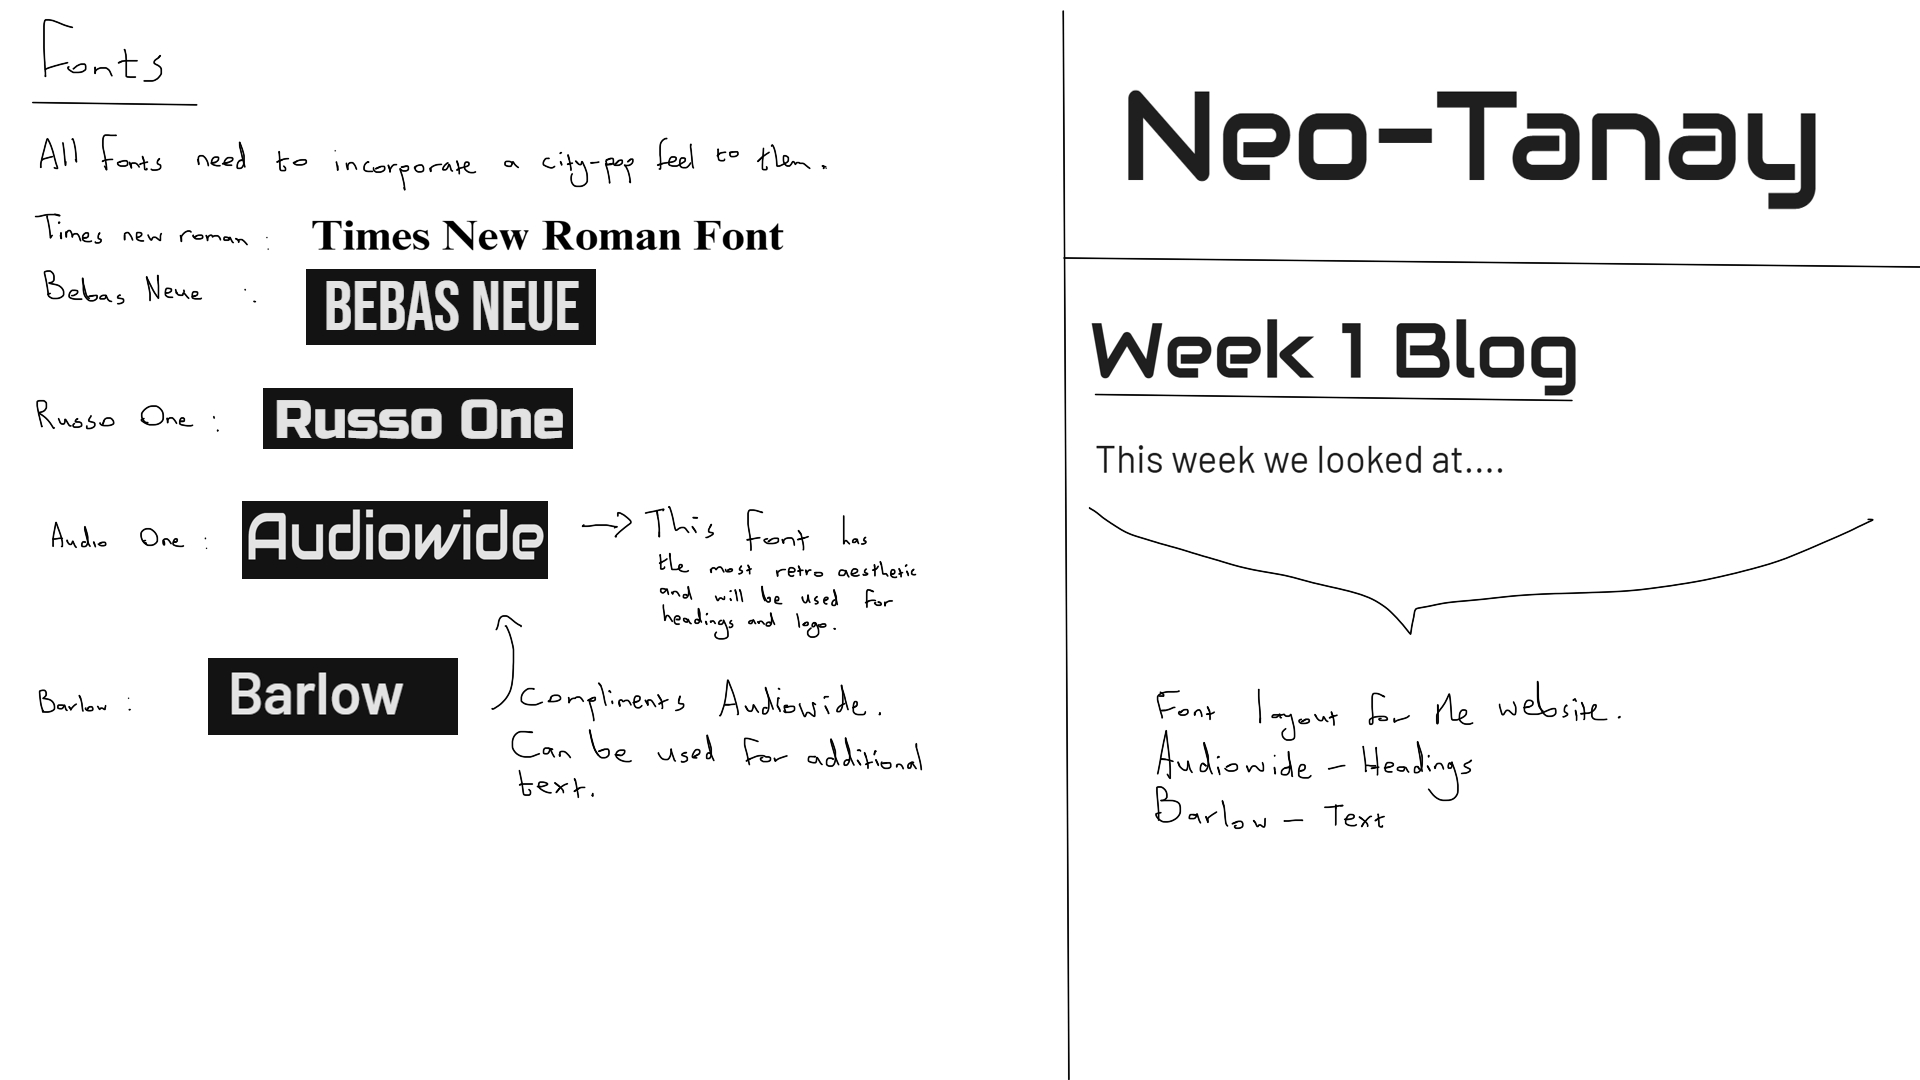 Fonts
All fonts need to incorporate a city-pop feel to them.
Times new roman : Times New Roman Font
Bebas Neue : BEBAS NEUE
Russo One : Russo One
Audio One : Audiowide → This font has
the most retro aesthetic
and will be used for
headings and logo.
Barlow : Barlow
Compliments Audiowide.
Can be used for additional
text.
Neo-Tanay
Week 1 Blog
This week we looked at....
Font layout for the website.
Audiowide - Headings
Barlow - Text